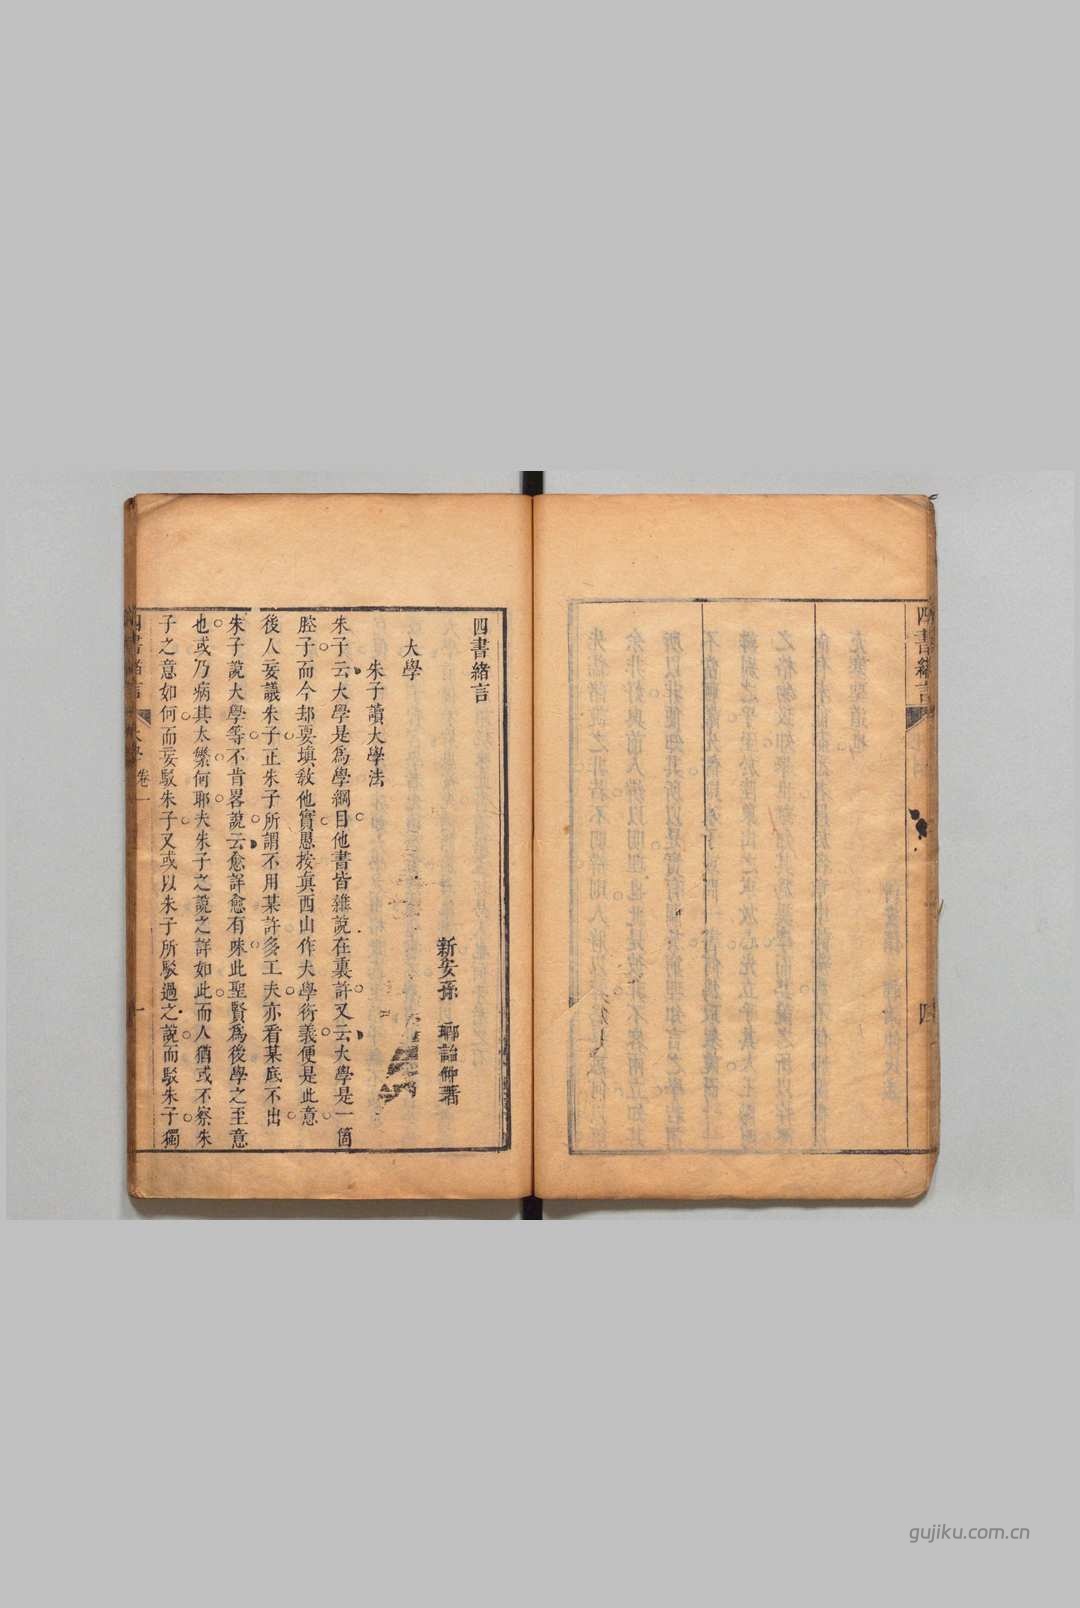 四書緒言
四
四書緒言
大學
新安孫 瑯詒仲著
朱子讀大學法
朱子云大學是爲學綱目他書皆雜說在裏許又云大學是一箇
腔子而今却要塡敎他實愚按眞西山作大學衍義便是此意
後人妄議朱子正朱子所謂不用某許多工夫亦看某底不出
朱子說大學等不肯畧說云愈詳愈有味此聖賢爲後學之至意
也或乃病其太繁何耶夫朱子之說之詳如此而人猶或不察朱
子之意如何而妄駁朱子又或以朱子所駁過之說而駁朱子獨
四書緒言
卷一
一
gujiku.com.cn